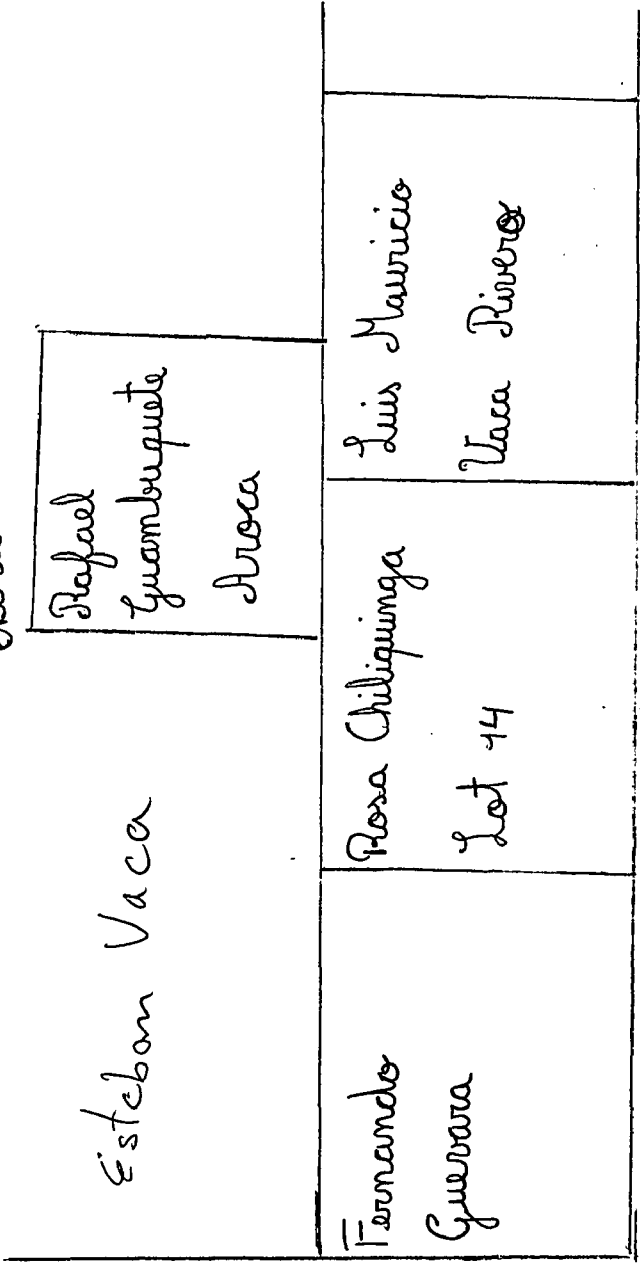 Esteban Vaca
Rafael
Guambuquete
Aroca
Fernando
Guevara
Rosa Chiliquinga
Lot 44
Luis Mauricio
Vaca Rivero